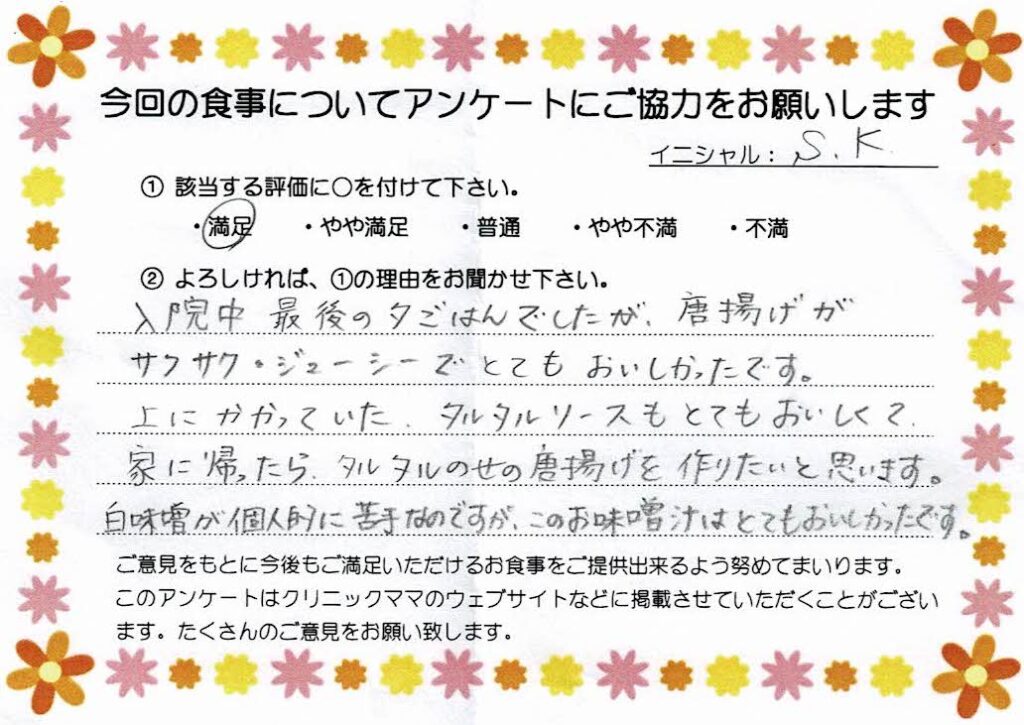 今回の食事についてアンケートにご協力をお願いします
イニシャル: S.K.
① 該当する評価に○を付けて下さい。
・満足 ・やや満足 ・普通 ・やや不満 ・不満
② よろしければ、①の理由をお聞かせ下さい。
入院中 最後の夕ごはんでしたが、唐揚げが
サクサク・ジューシーでとても おいしかったです。
上に かかっていた、タルタルソースも とてもおいしくて、
家に帰ったら、タルタルのせの唐揚げを 作りたいと思います。
白味噌が個人的に苦手なのですが、このお味噌汁はとてもおいしかったです。
ご意見をもとに今後もご満足いただけるお食事をご提供出来るよう努めてまいります。
このアンケートはクリニックママのウェブサイトなどに掲載させていただくことがござい
ます。たくさんのご意見をお願い致します。